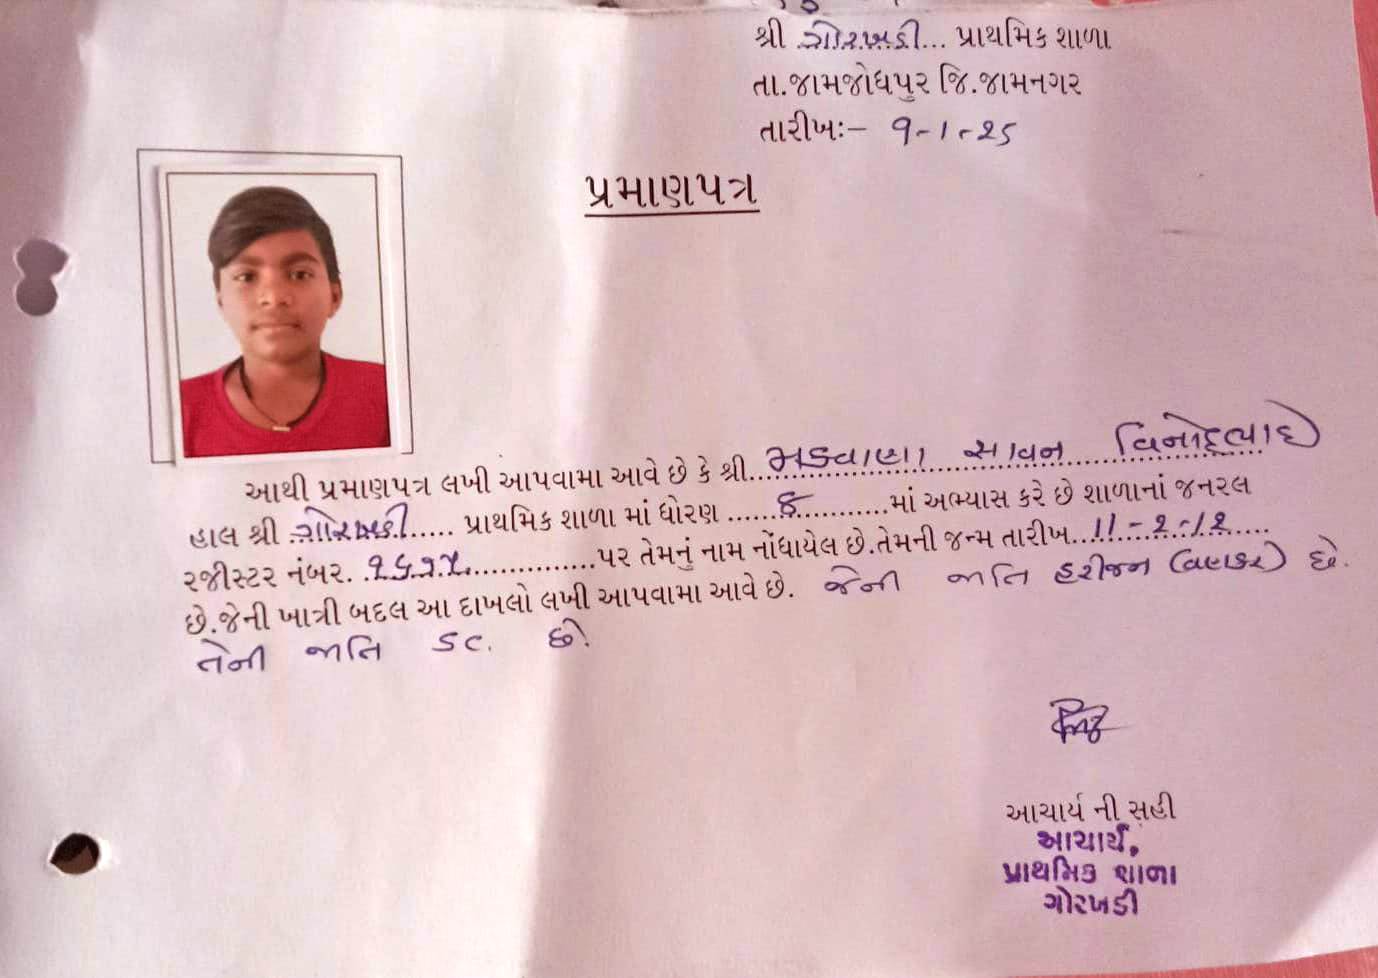 શ્રી ગોરખડી... પ્રાથમિક શાળા
તા.જામજોધપુર જિ.જામનગર
તારીખઃ– 9-1-25
પ્રમાણપત્ર
આથી પ્રમાણપત્ર લખી આપવામા આવે છે કે શ્રી...મકવાણા સાવન વિનોદભાઈ
હાલ શ્રી ગોરખડી...... પ્રાથમિક શાળા માં ધોરણ ......૬...........માં અભ્યાસ કરે છે શાળાનાં જનરલ
રજીસ્ટર નંબર. ...............પર તેમનું નામ નોંધાયેલ છે.તેમની જન્મ તારીખ...11-2-12....
છે.જેની ખાત્રી બદલ આ દાખલો લખી આપવામા આવે છે. જેની જાતિ હરીજન (વણકર) છે.
તેની જાતિ SC. છે.
આચાર્ય ની સહી
આચાર્ય,
પ્રાથમિક શાળા
ગોરખડી